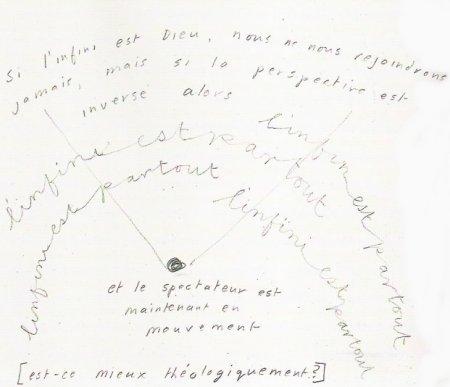 Si l'infini est Dieu, nous ne nous rejoindrons
jamais, mais si la perspective est
inverse alors
l'infini est partout
l'infini est partout
l'infini est partout
l'infini est partout
et le spectateur est
maintenant en
mouvement
[est-ce mieux théologiquement?]